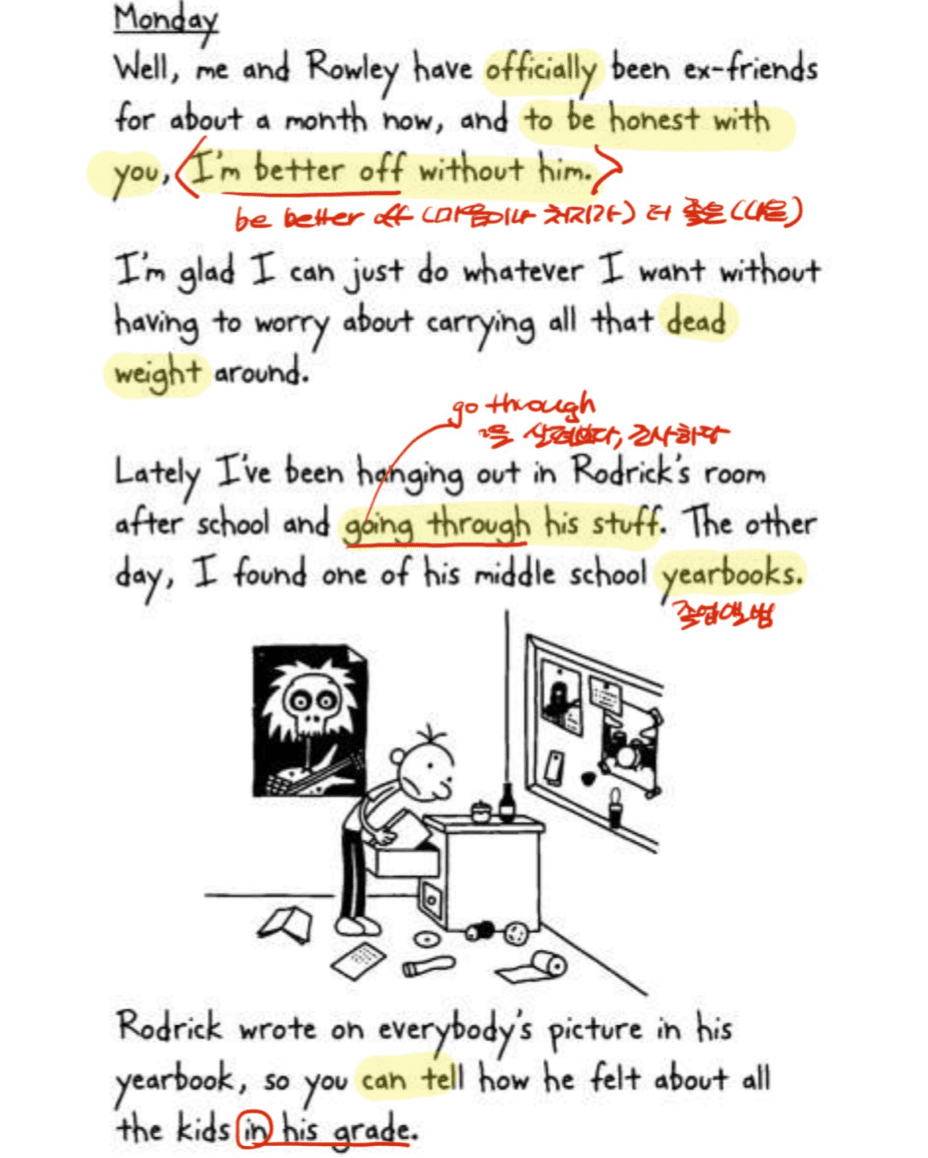 Monday
Well, me and Rowley have officially been ex-friends
for about a month now, and to be honest with
you, I'm better off without him.
be better off (마음이나 처지가) 더 좋은 (나은)
I'm glad I can just do whatever I want without
having to worry about carrying all that dead
weight around.
go through
~을 살펴보다, 조사하다
Lately I've been hanging out in Rodrick's room
after school and going through his stuff. The other
day, I found one of his middle school yearbooks.
졸업앨범
Rodrick wrote on everybody's picture in his
yearbook, so you can tell how he felt about all
the kids in his grade.